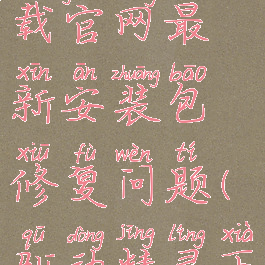 载官网最
xīn ān zhuāng bāo
新安装包
xiū fù wèn tí
修复问题(
qū dòng jīng líng xià
驱动精灵下